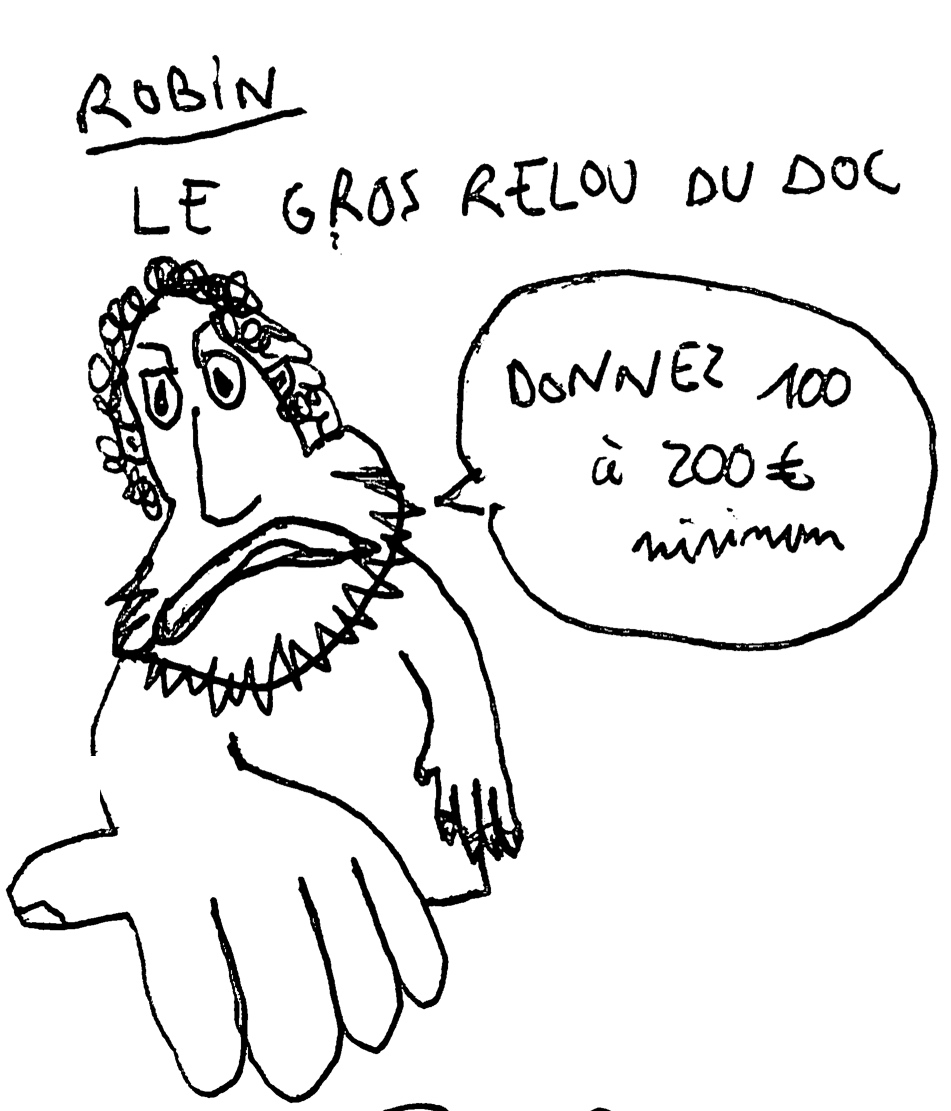 ROBIN
LE GROS RELOU DU DOC
DONNEZ 100
à 200 €
minimum